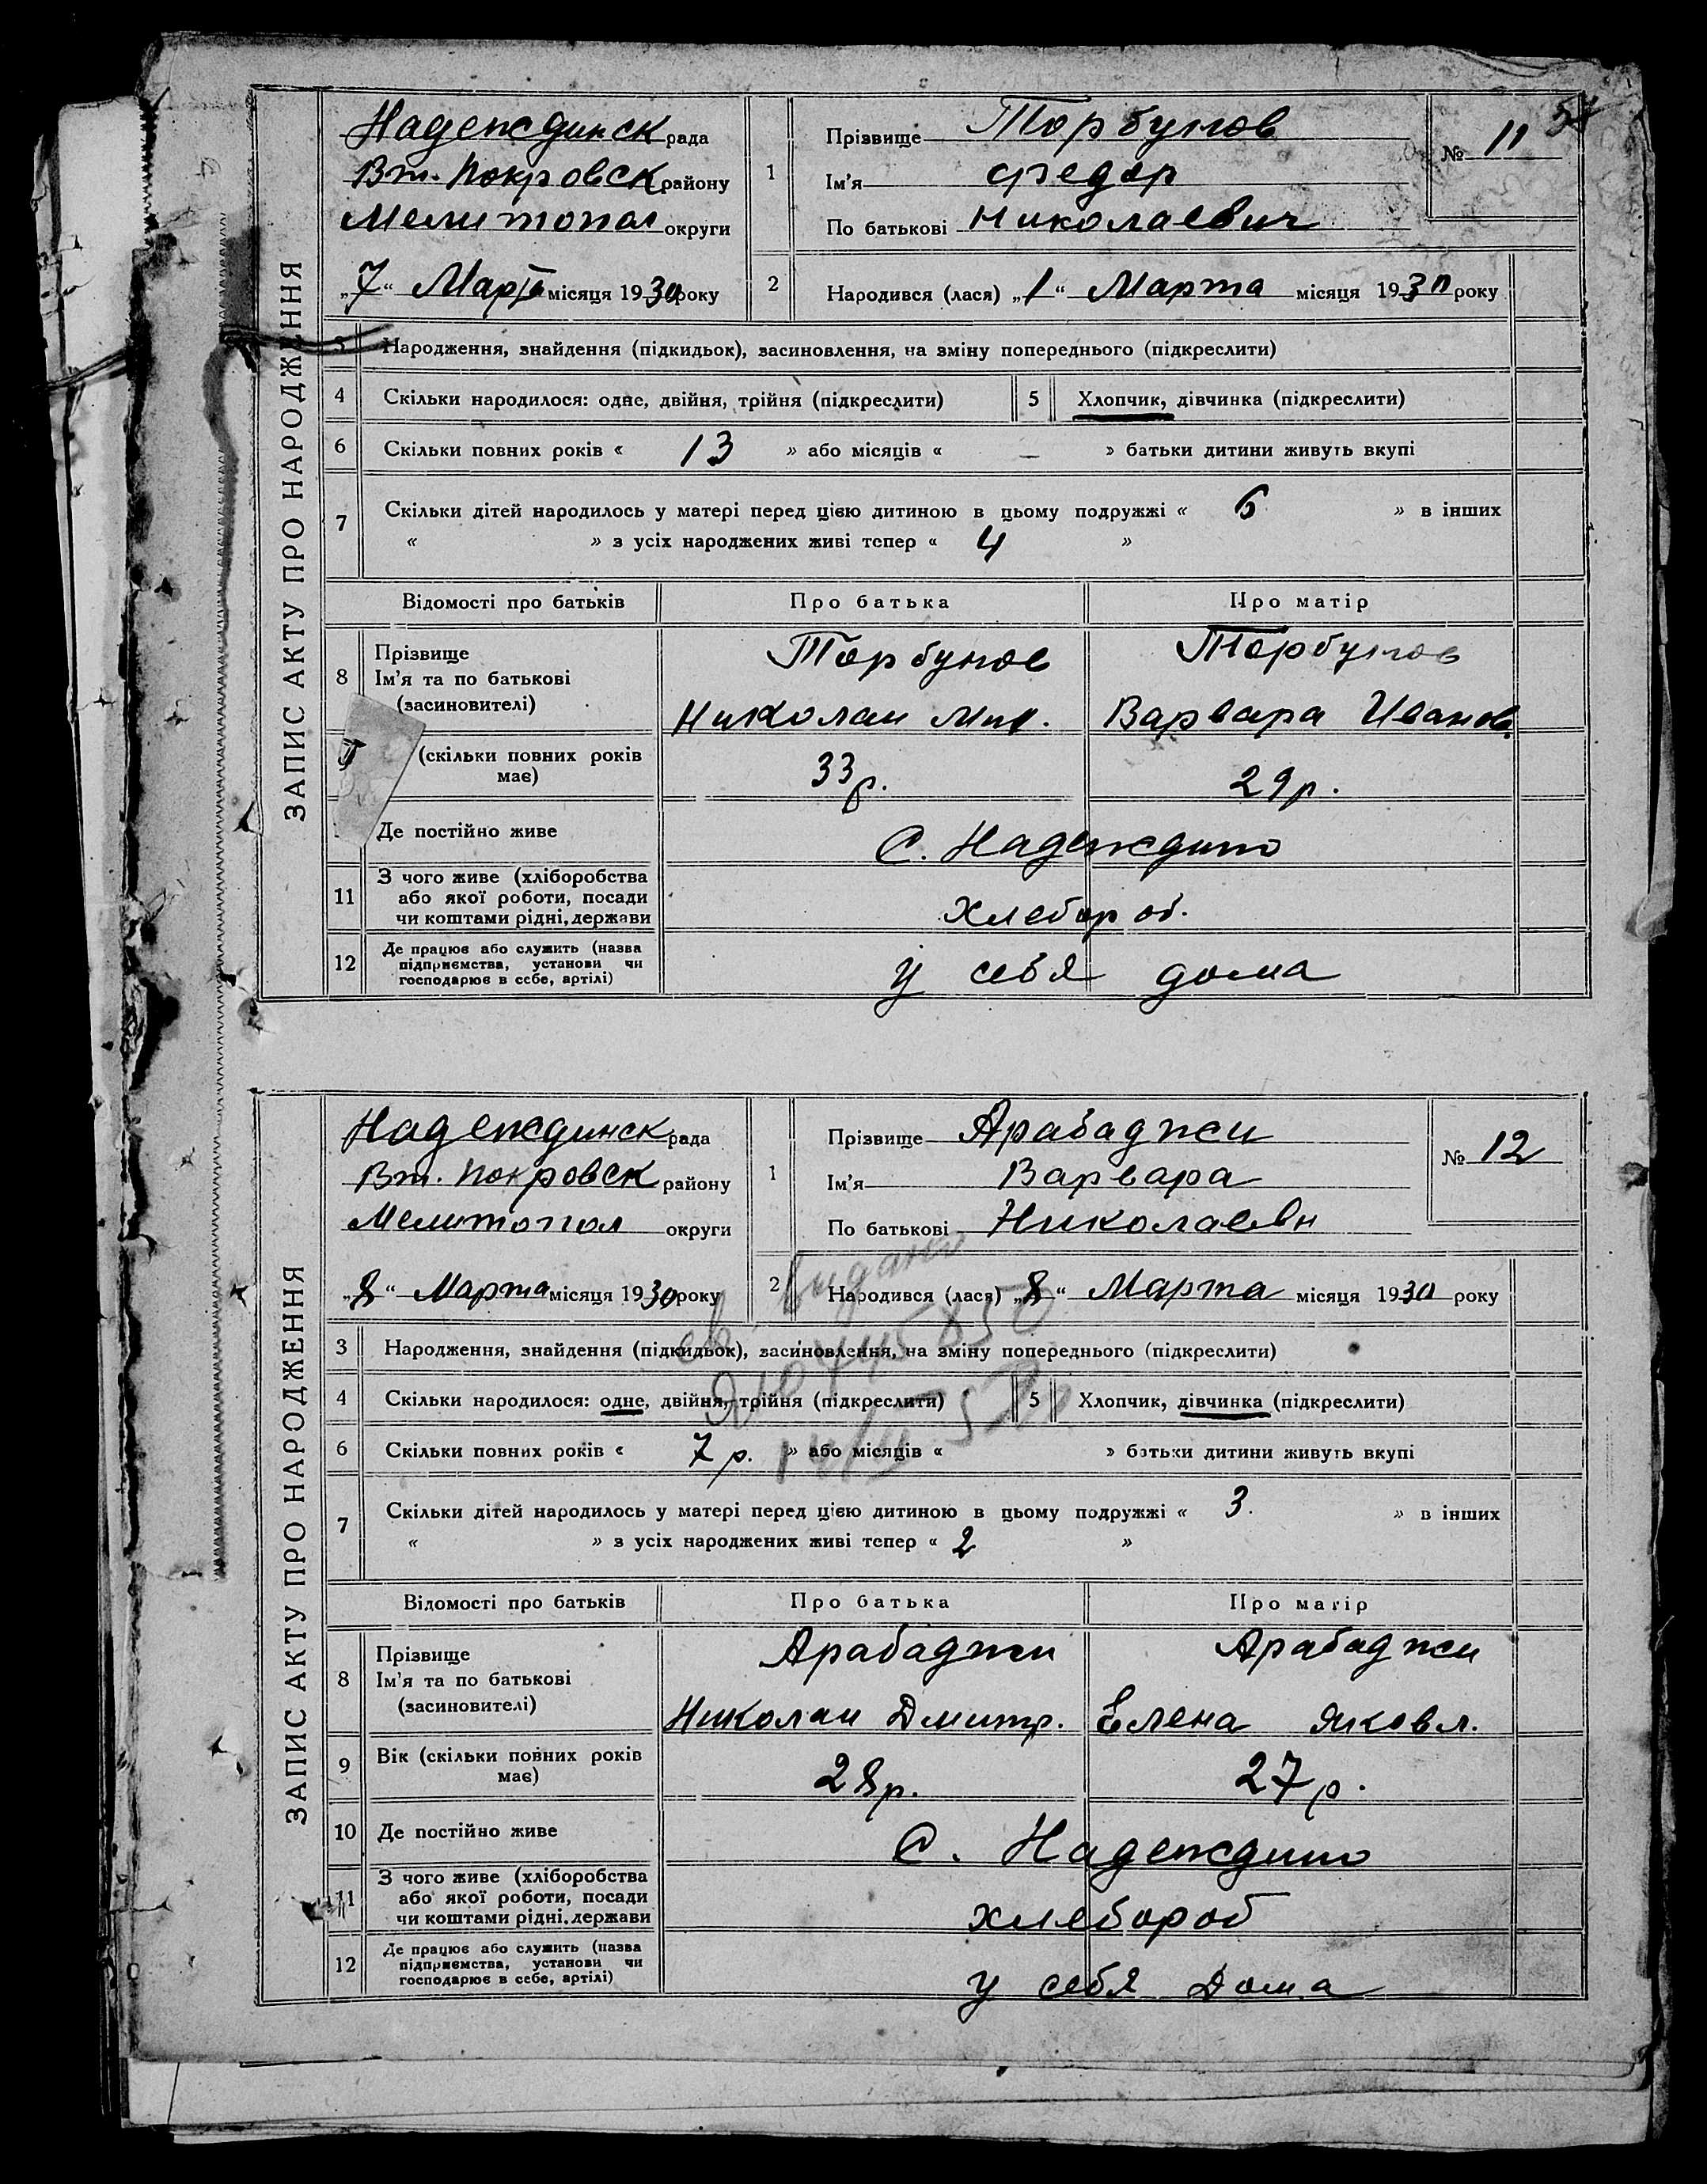 ЗАПИС АКТУ ПРО НАРОДЖЕННЯ
Надеждинск рада
Вт. Покровск району
Мелитопол округи
„7“ Марта місяця 1930 року
1
Прізвище Торбунов
Ім'я Федор
По батькові Николаевич
№ 11
2
Народився (лася) „1“ Марта місяця 1930 року
3 Народження, знайдення (підкидьок), засиновлення, на зміну попереднього (підкреслити)
4 Скільки народилося: одне, двійня, трійня (підкреслити) 5 Хлопчик, дівчинка (підкреслити)
6 Скільки повних років « 13 » або місяців « – » батьки дитини живуть вкупі
7 Скільки дітей народилось у матері перед цією дитиною в цьому подружжі « 6 » в інших
« » з усіх народжених живі тепер « 4 »
Відомості про батьків Про батька Про матір
8 Прізвище
Ім'я та по батькові
(засиновителі)
Торбунов
Николаи Мих.
Торбунов
Варвара Иванов.
(скільки повних років
має)
33 р. 29 р.
Де постійно живе С. Надеждино
11 З чого живе (хліборобства
або якої роботи, посади
чи коштами рідні, держави
Хлебороб.
12 Де працює або служить (назва
підприємства, установи чи
господарює в себе, артілі)
У себя дома
ЗАПИС АКТУ ПРО НАРОДЖЕННЯ
Надеждинск рада
Вт. Покровск району
Мелитопол округи
„8“ Марта місяця 1930 року
1
Прізвище Арабаджи
Ім'я Варвара
По батькові Николаевн
№ 12
2
Народився (лася) „8“ Марта місяця 1930 року
3 Народження, знайдення (підкидьок), засиновлення, на зміну попереднього (підкреслити)
4 Скільки народилося: одне, двійня, трійня (підкреслити) 5 Хлопчик, дівчинка (підкреслити)
6 Скільки повних років « 7 р. » або місяців « » батьки дитини живуть вкупі
7 Скільки дітей народилось у матері перед цією дитиною в цьому подружжі « 3. » в інших
« » з усіх народжених живі тепер « 2 »
Відомості про батьків Про батька Про матір
8 Прізвище
Ім'я та по батькові
(засиновителі)
Арабаджи
Николаи Дмитр.
Арабаджи
Елена Яковл.
9 Вік (скільки повних років
має)
28 р. 27 р.
10 Де постійно живе С. Надеждино
11 З чого живе (хліборобства
або якої роботи, посади
чи коштами рідні, держави
хлебороб
12 Де працює або служить (назва
підприємства, установи чи
господарює в себе, артілі)
У себя Дома